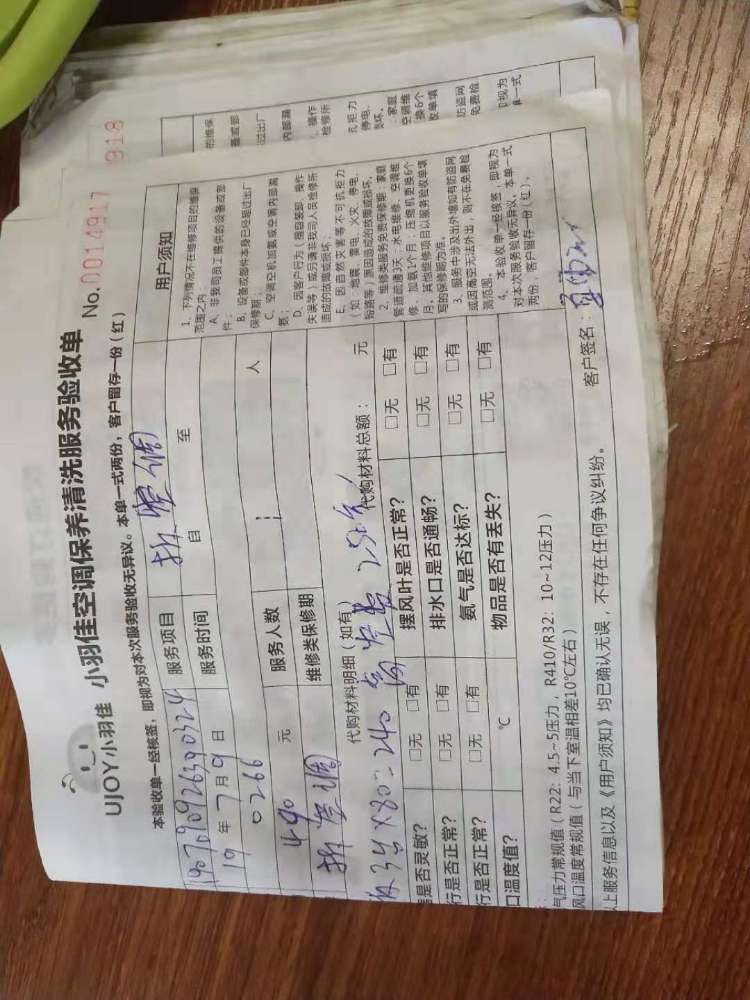 UJOY小羽佳 小羽佳空调保养清洗服务验收单
No.0014917
918
本验收单一经核签，即视为对本次服务验收无异议。本单一式两份，客户留存一份（红）
1907090926390324 服务项目 拆空调
19年7月9日 服务时间 自 至
0266
490 元 服务人数 1 人
拆空调 维修类保修期
代购材料明细（如有） 代购材料总额： 元
3米×80=240 高空费 250元
是否灵敏？ □无 □有 摆风叶是否正常？ □无 □有
行是否正常？ □无 □有 排水口是否通畅？ □无 □有
行是否正常？ □无 □有 氨气是否达标？ □无 □有
口温度值？ ℃ 物品是否有丢失？ □无 □有
用户须知
1、下列情况不在维修项目的维保
范围之内：
A、非我司员工提供的设备或部
件；
B、设备或部件本身已经超过出厂
保修期；
C、空调空机加氨或空调内部漏
氨；
D、因客户行为（擅自装卸、操作
失误等）或另请非我司人员检修所
造成的故障或损坏；
E、因自然灾害等不可抗拒力
（如：地震、雷电、火灾、停电、
短路等）原因造成的故障或损坏。
2、维修类服务免费保修期：家庭
管道疏通3天；水电维修、空调维
修、加氨1个月；压缩机更换6个
月。其他维修项目以服务验收单填
写的保修期为准。
3、服务中涉及出外墙如有防盗网
或因高空无法外出，则不在免费检
测范围。
4、本验收单一经核签，即视为
对本次服务验收无异议。本单一式
两份，客户留存一份（红）。
气压力常规值（R22：4.5~5压力，R410/R32：10~12压力）
风口温度常规值（与当下室温相差10℃左右）
以上服务信息以及《用户须知》均已确认无误，不存在任何争议纠纷。 客户签名：